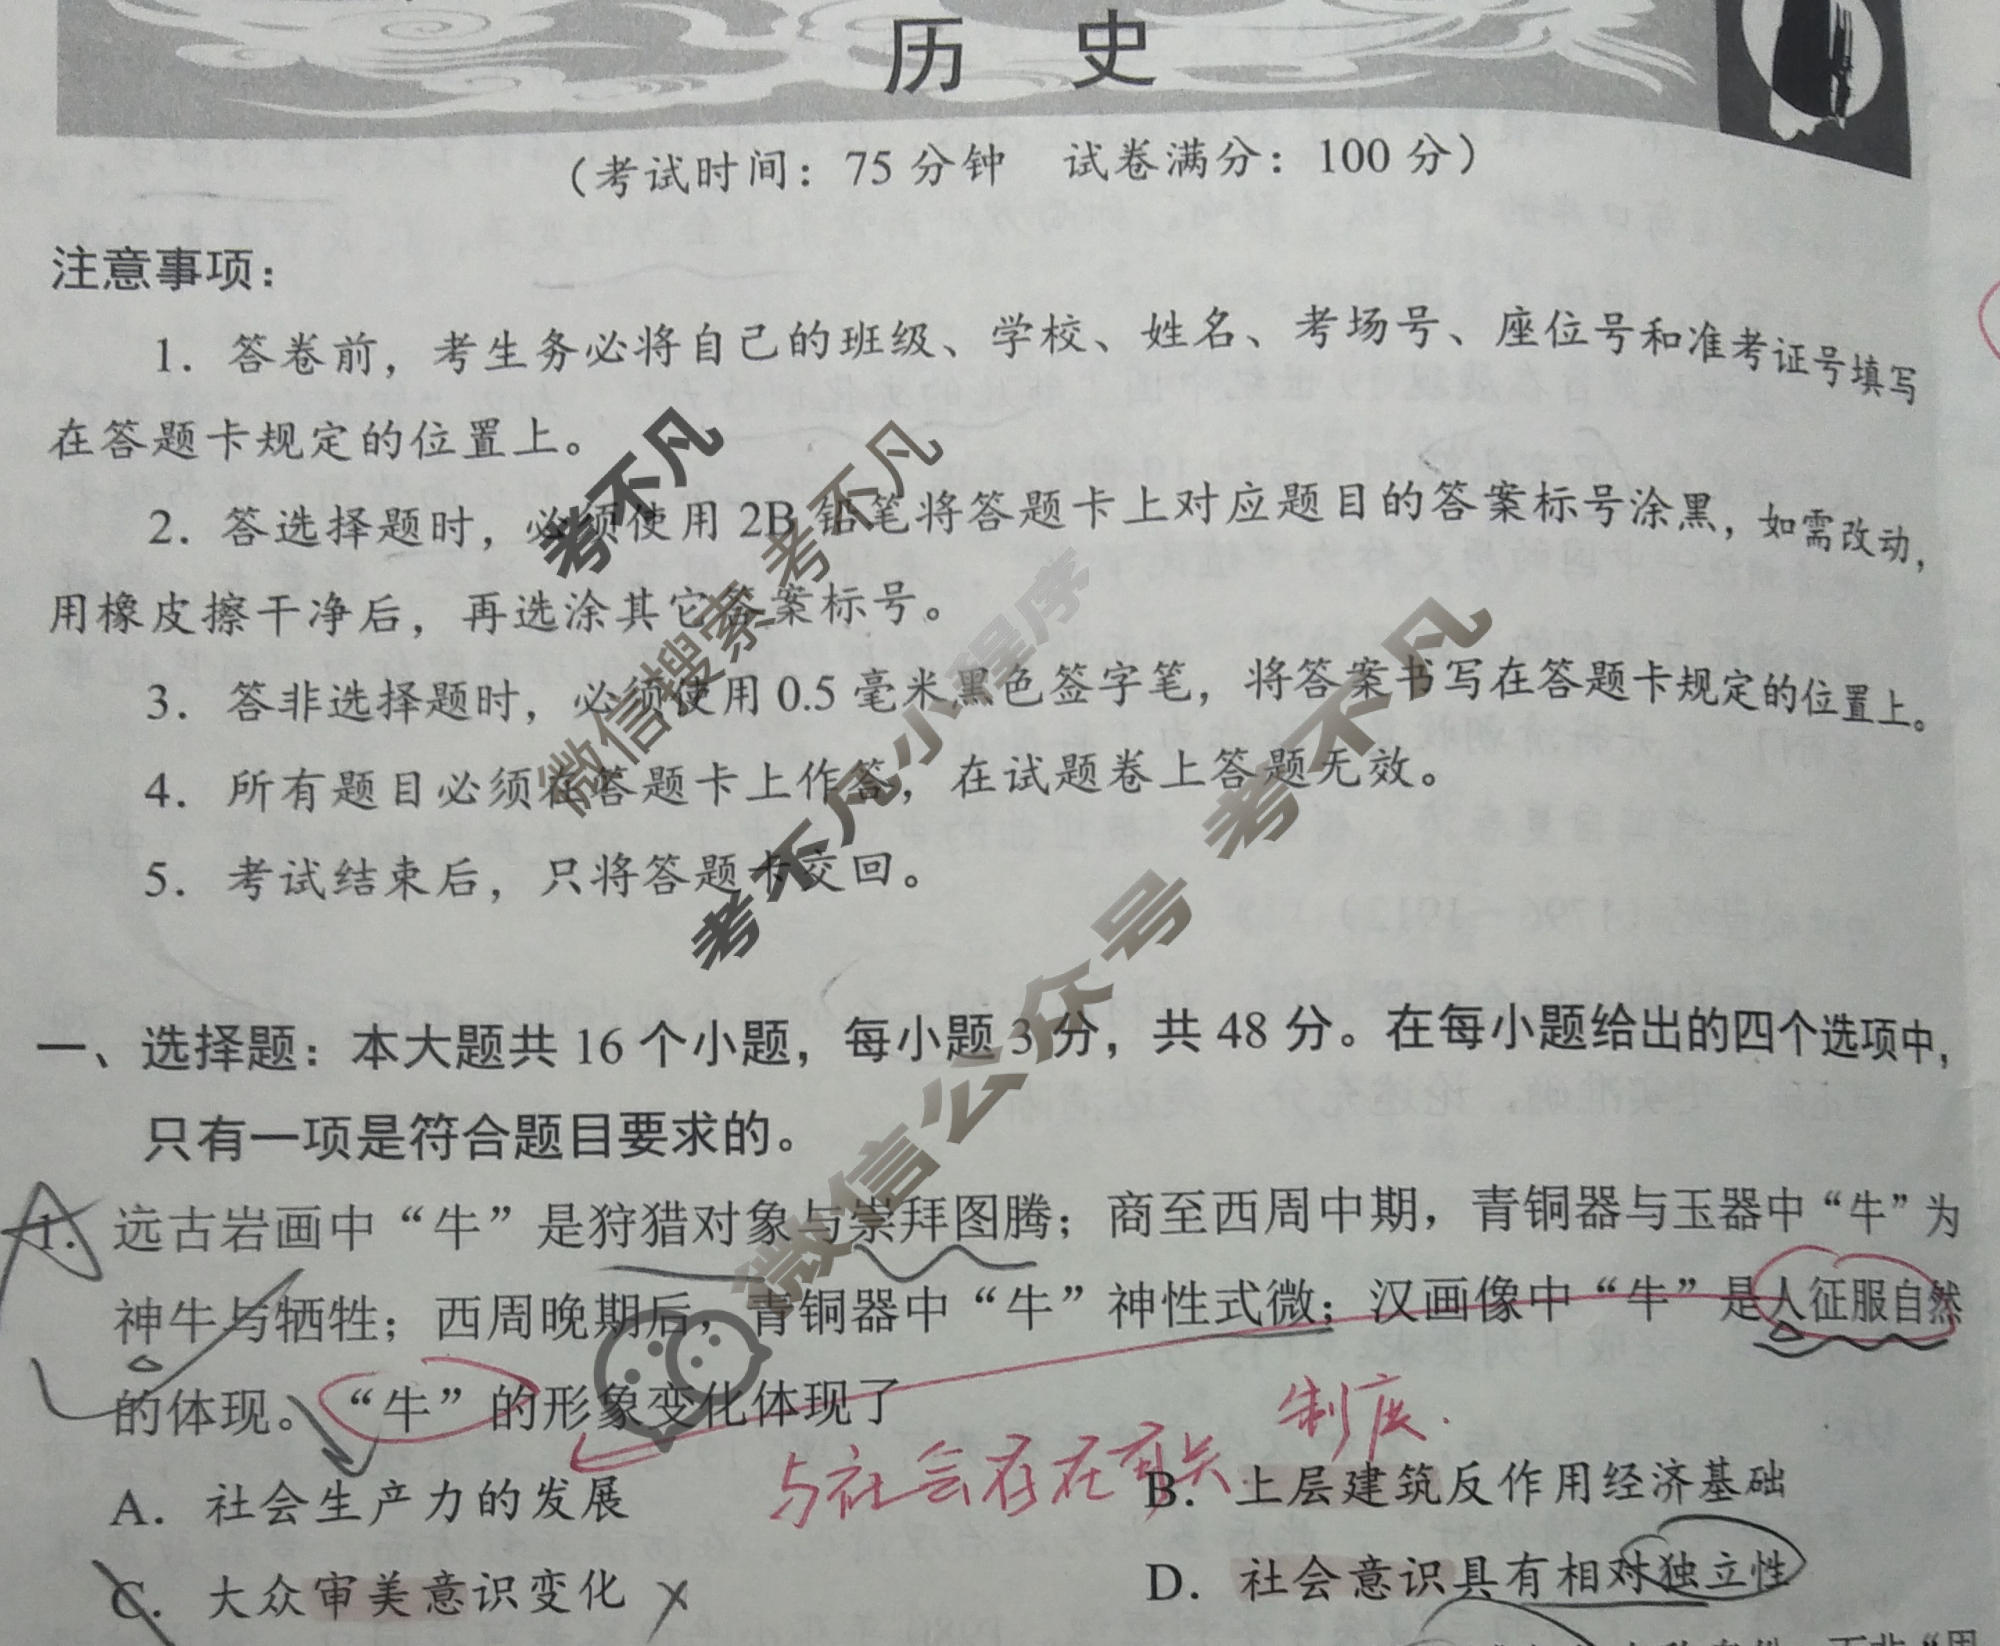 历 史
（考试时间：75 分钟 试卷满分：100 分）
注意事项：
1．答卷前，考生务必将自己的班级、学校、姓名、考场号、座位号和准考证号填写
在答题卡规定的位置上。
2．答选择题时，必须使用 2B 铅笔将答题卡上对应题目的答案标号涂黑，如需改动，
用橡皮擦干净后，再选涂其它答案标号。
3．答非选择题时，必须使用 0.5 毫米黑色签字笔，将答案书写在答题卡规定的位置上。
4．所有题目必须在答题卡上作答，在试题卷上答题无效。
5．考试结束后，只将答题卡交回。
考不凡
微信搜索 考不凡
考不凡小程序
微信公众号 考不凡
一、选择题：本大题共 16 个小题，每小题 3 分，共 48 分。在每小题给出的四个选项中，
只有一项是符合题目要求的。
1．远古岩画中“牛”是狩猎对象与崇拜图腾；商至西周中期，青铜器与玉器中“牛”为
神牛与牺牲；西周晚期后，青铜器中“牛”神性式微；汉画像中“牛”是人征服自然
的体现。“牛”的形象变化体现了
制度．
与社会存在有关
A．社会生产力的发展 B．上层建筑反作用经济基础
C．大众审美意识变化 D．社会意识具有相对独立性